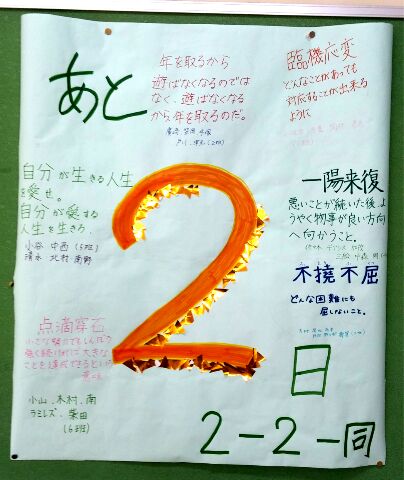 あと
年を取るから
遊ばなくなるのでは
なく、遊ばなくなる
から年を取るのだ。
臨機応変
どんなことがあっても
対応することが出来る
ように
自分が生きる人生
を愛せ。
自分が愛する
人生を生きろ.
小谷 中西 (5班)
清水 北村 南野
2
一陽来復
悪いことが続いた後、よ
うやく物事が良い方向
へ向かうこと。
不撓不屈
どんな困難にも
屈しないこと。
点滴穿石
小さな努力でもしんぼう
強く続ければ大きな
ことを達成できるという
意味
小山、木村、南
ラミレズ、栗田
(6班)
日
2-2一同